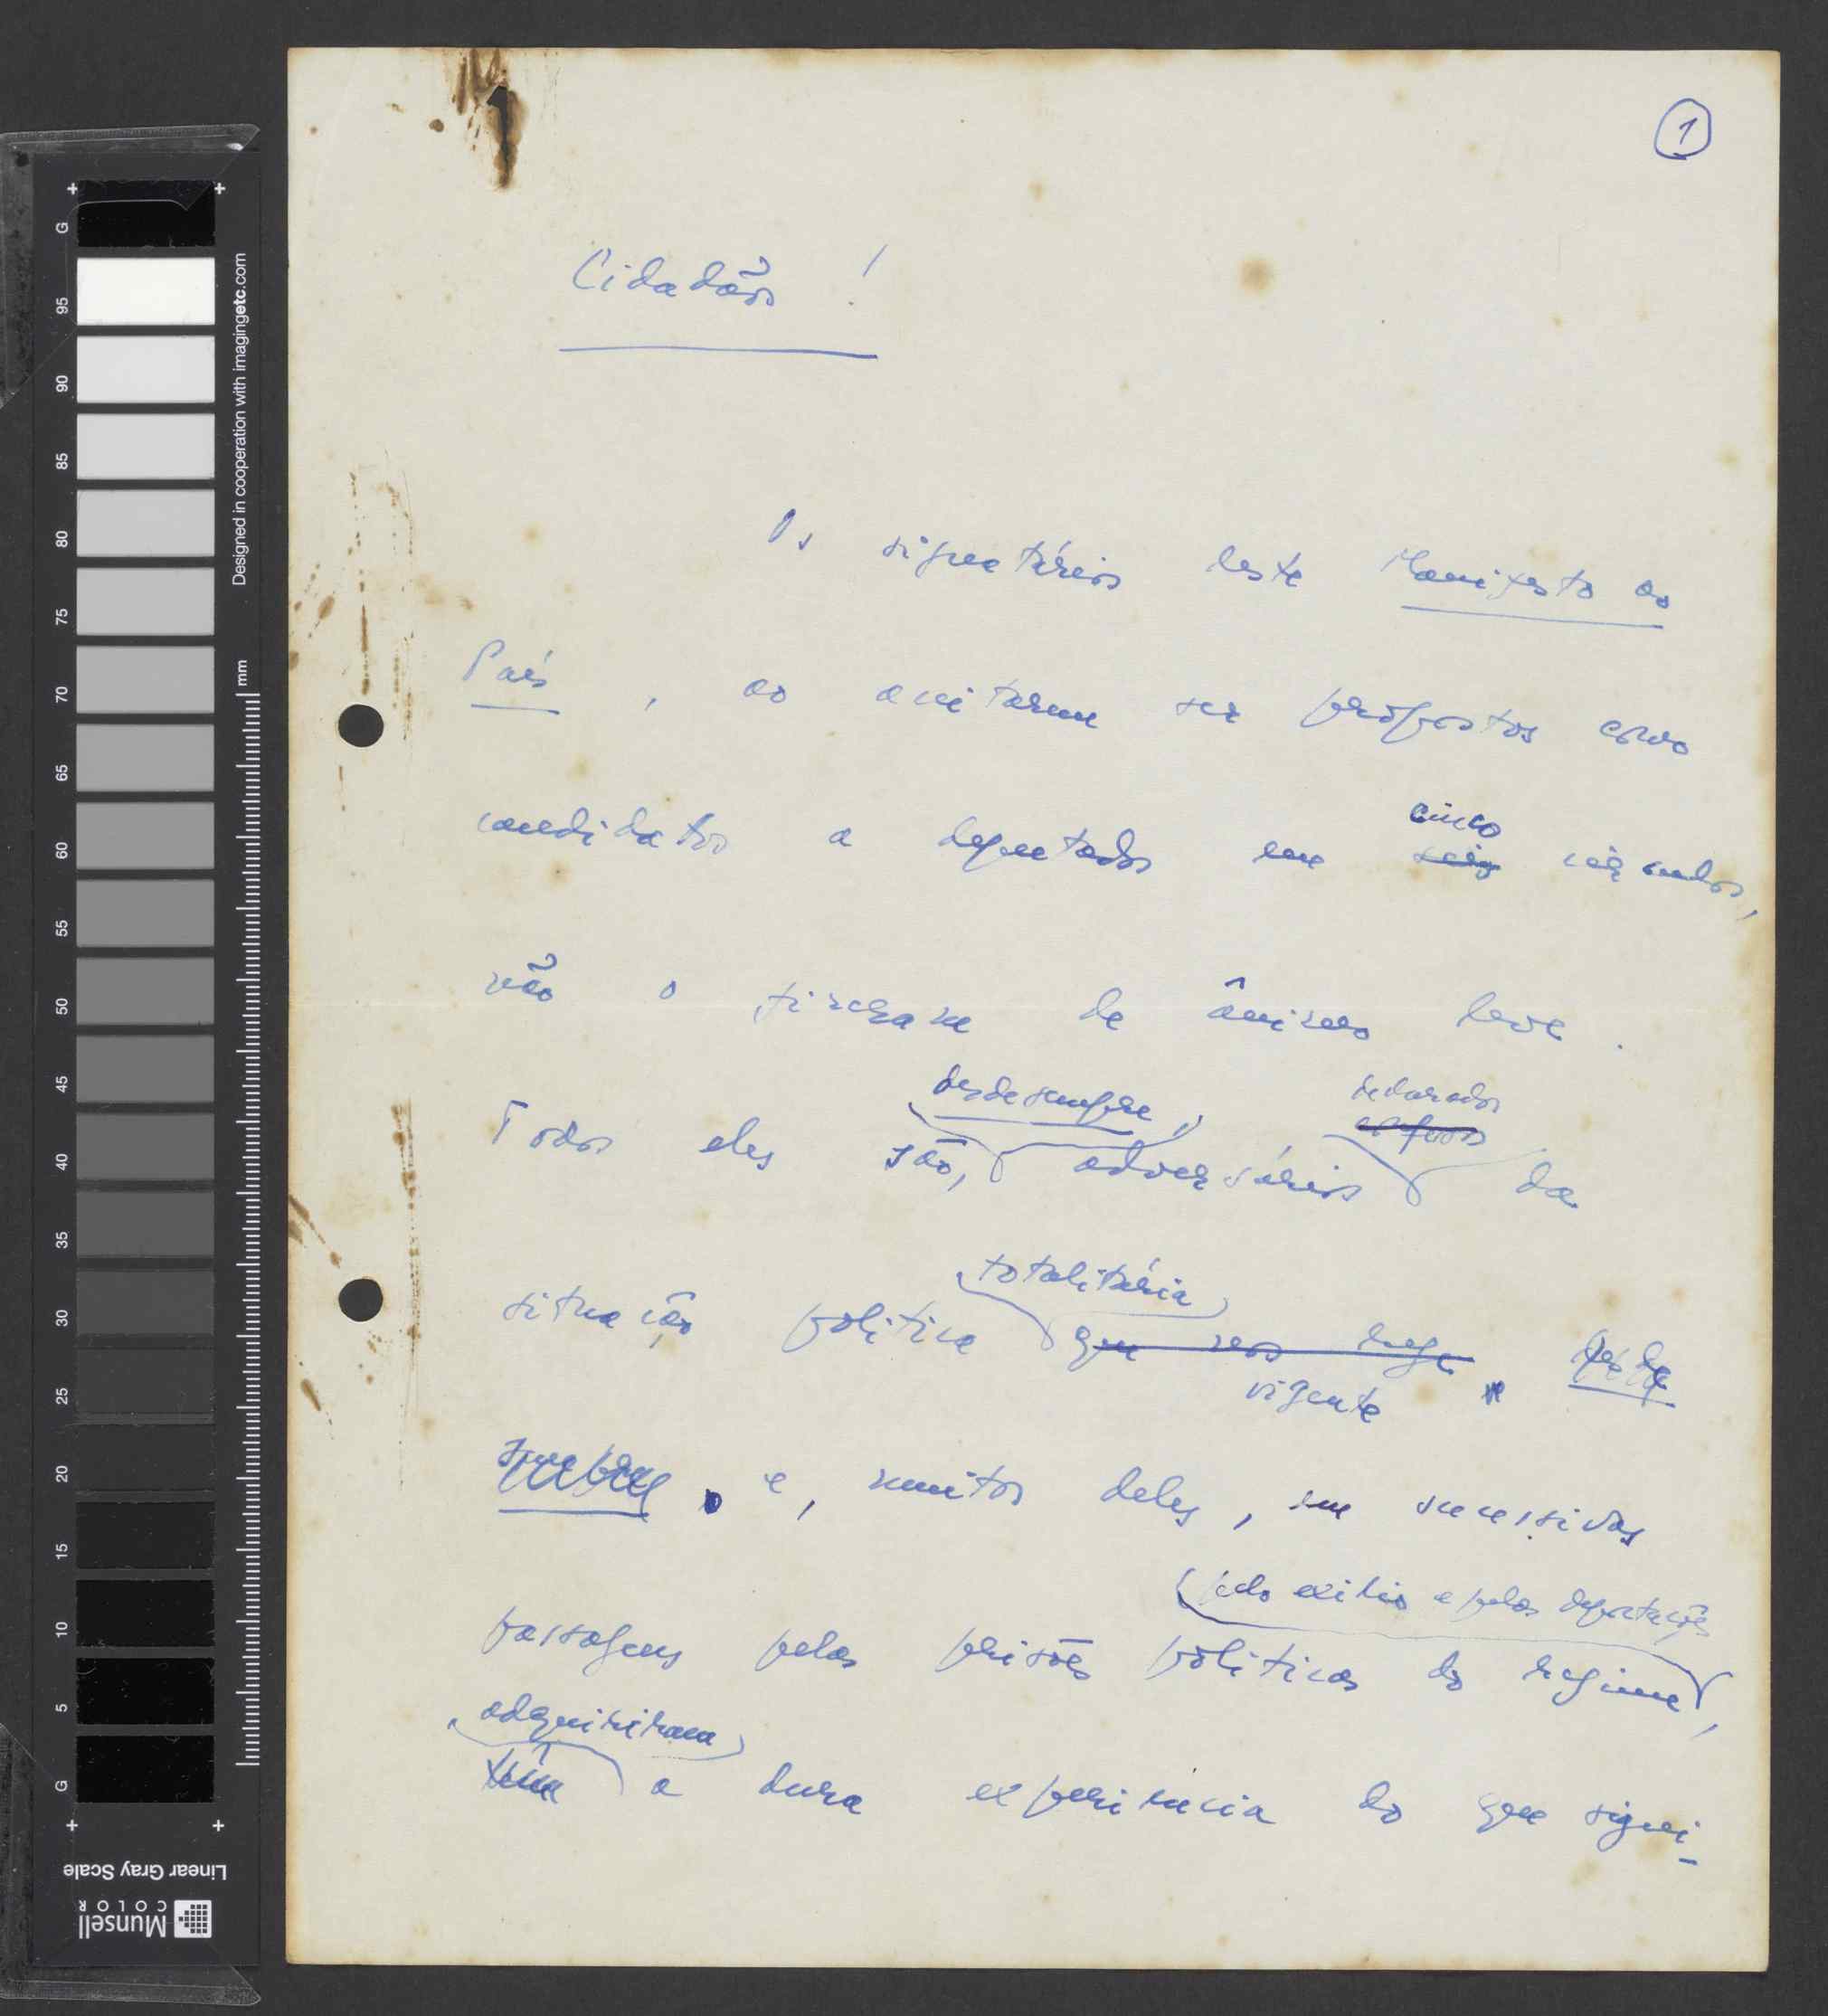 1
Cidadãos !
Os signatários deste Manifesto ao
País , ao aceitarem ser propostos como
cinco
candidatos a deputados em seis círculos,
não o fizeram de ânimo leve .
desde sempre, declarados
Todos eles são, adversários da
totalitária
situação política que nos rege desde
vigente
sempre , e, muitos deles, em sucessivas
pelo exílio e pelas deportações
passagens pelas prisões políticas do regime,
adquiriram
têm a dura experiência do que signi-
G 95 90 85 80 75 70 65 60 55 50 45 40 35 30 25 20 15 10 5 G
Designed in cooperation with imagingetc.com
mm
Linear Gray Scale
Munsell
COLOR